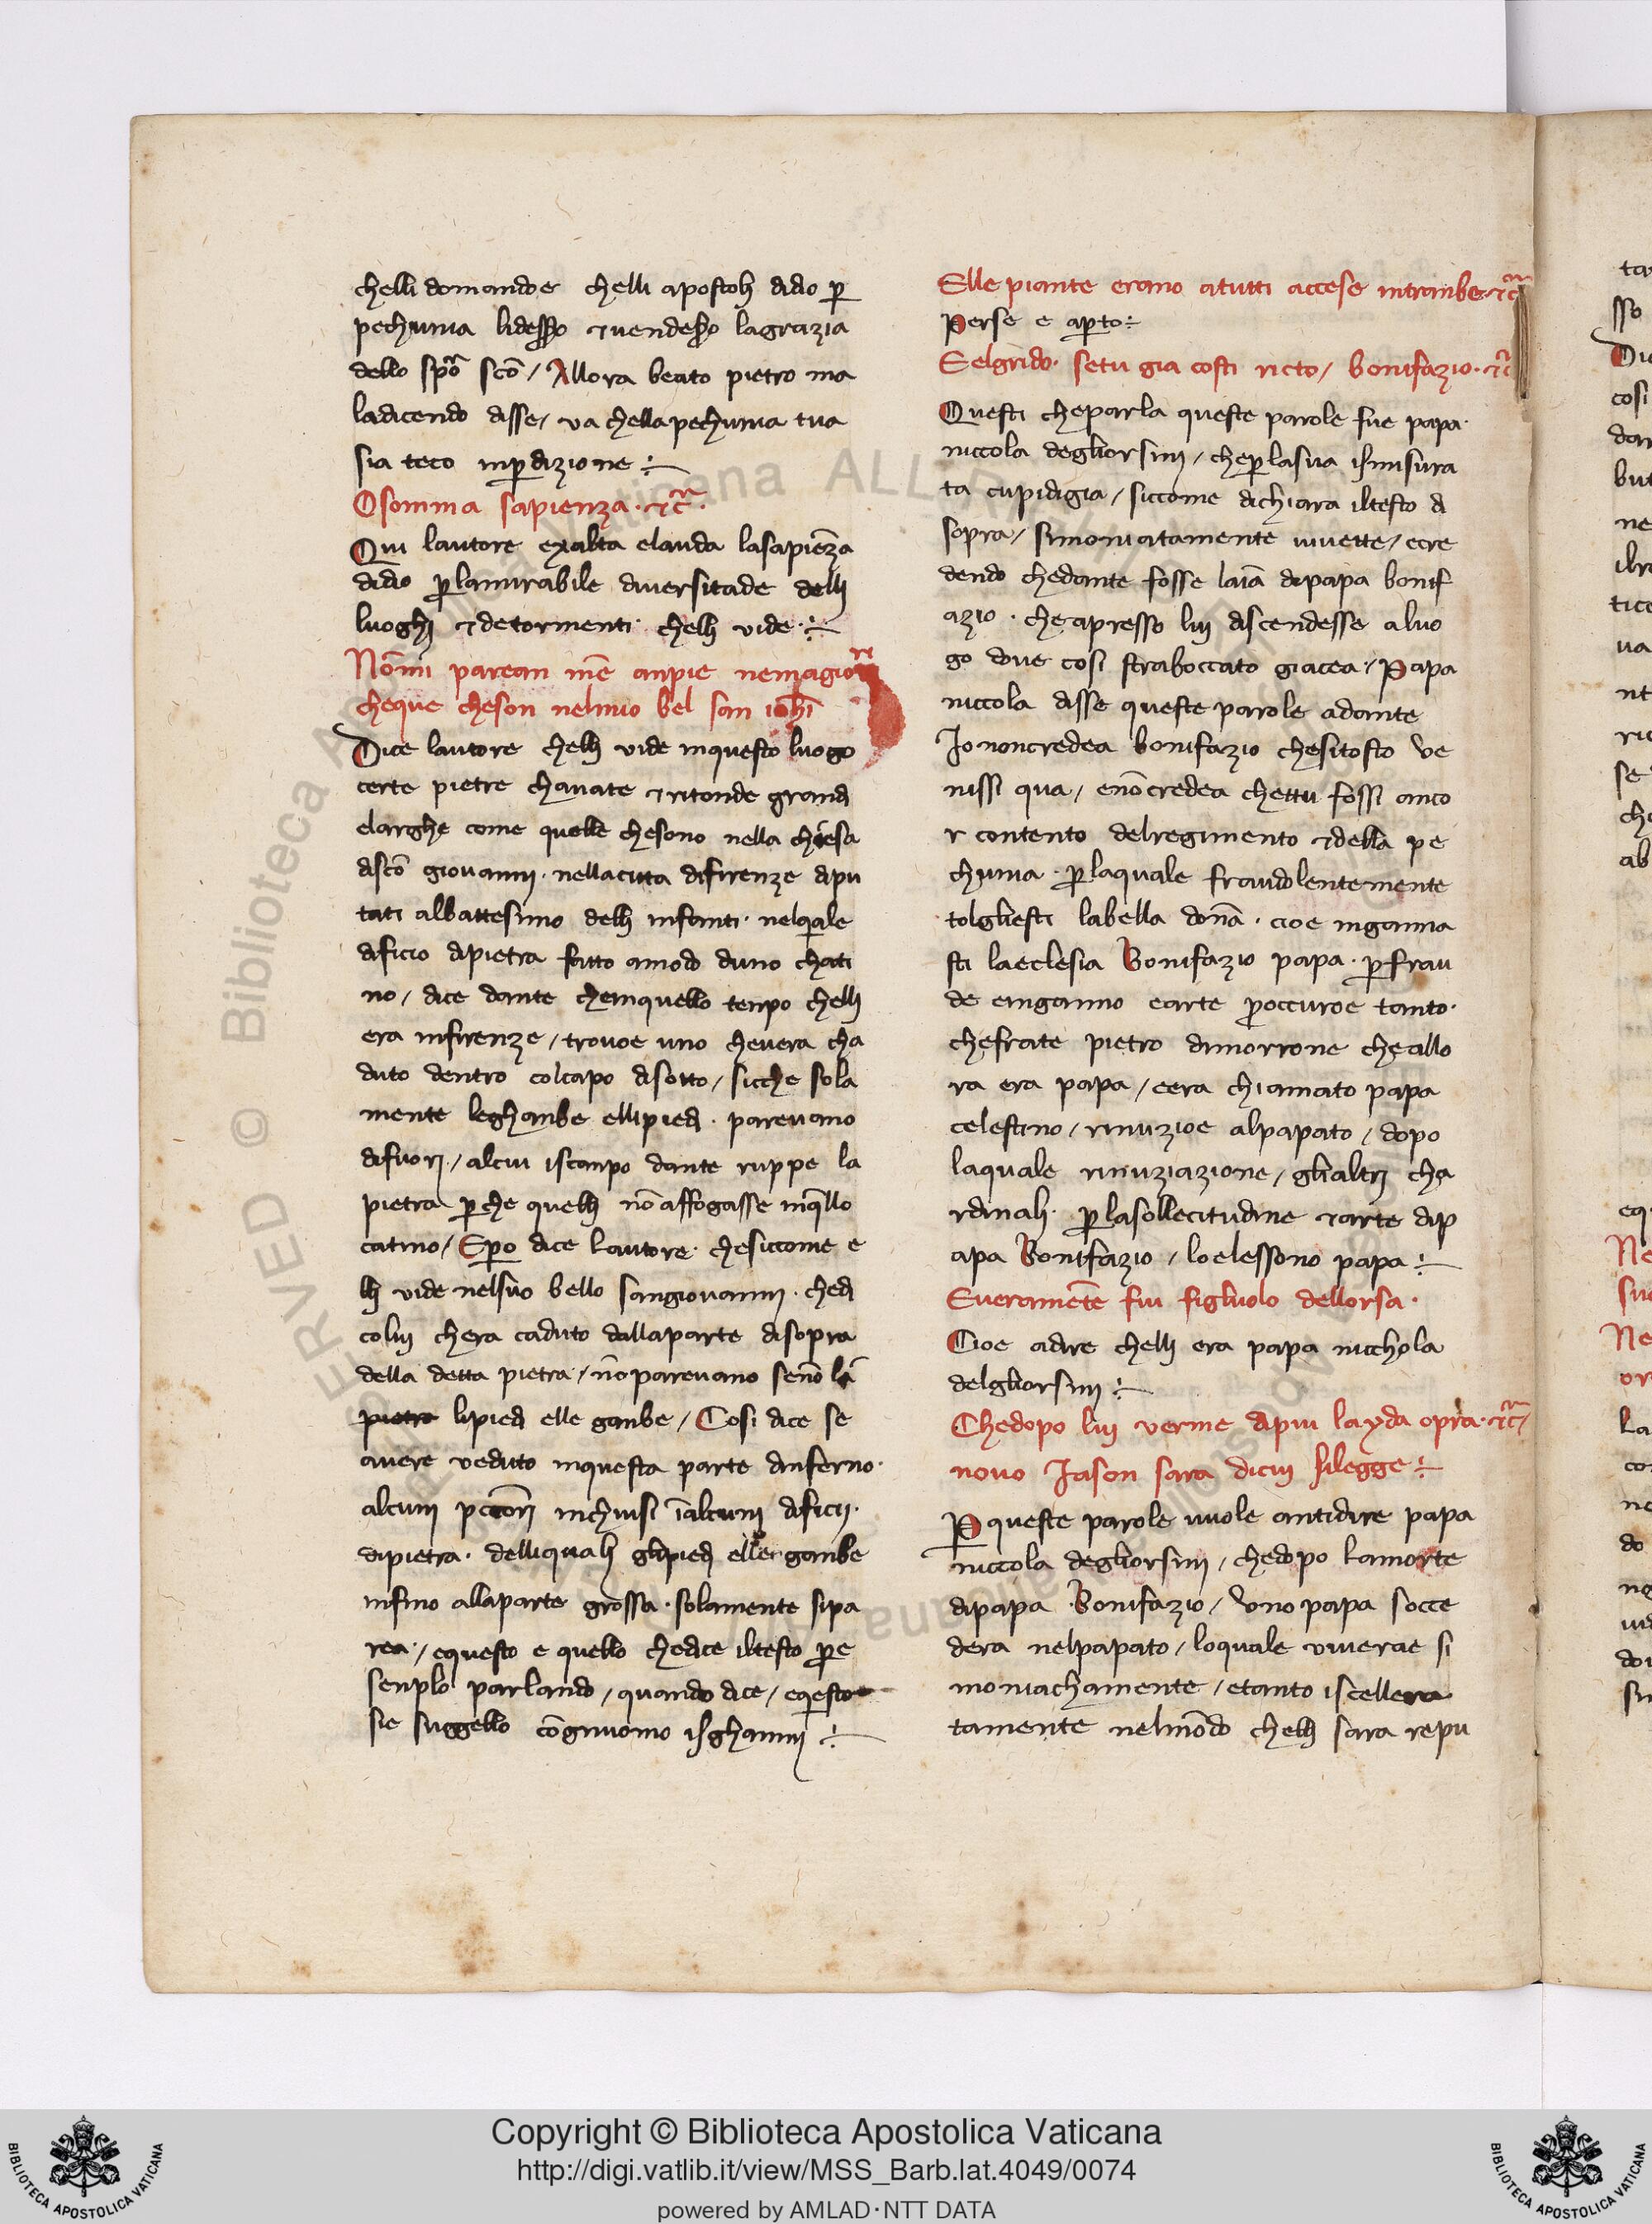 chelli domandoe chelli apostoli didio ꝑ
pechunia lidesso ⁊vendesso lagrazia
dello sp̃o sc̃o / Allora beato pietro ma
ladicendo disse / va chella pechunia tua
sia teco inꝑdizione ÷
Osomma sapienza · ⁊c̃ ·
Qui lautore exalta elauda lasapiẽza
didio ꝑlamirabile diversitade delli
luoghi ⁊detormenti chelli vide ·÷
Nõmi parean mẽ anpie nemagiorre
cheque cheson nelmio bel san iohĩ
Dice lautore chelli vide inquesto luogo
certe pietre chavate ⁊ritonde grandi
elarghe come quelle chesono nella chiesa
disc̃o giovanni · nellacitta difirenze dipu
tati albattesimo delli infanti · nelquale
dificio dipietra fatto amodo duno chati
no / dice dante cheinquello tenpo chelli
era infirenze / trovoe uno chevera cha
duto dentro colcapo disotto / sicche sola
mente leghanbe ellipiedi · parevano
difuori / alcui iscanpo dante ruppe la
pietra ꝑche quelli nõ affogasse inq̃llo
catino / Eꝑo dice lautore · chesiccome e
lli vide nelsuo bello sangiovanni · chedi
colui chera caduto dallaparte disopra
della detta pietra / nõ parevano senõ la
pietra lipiedi elle ganbe / Cosi dice se
avere veduto inquesta parte dinferno ·
alcuni pc̃tori inchiusi ĩalcuni dificii ·
dipietra · delliquali glipiedi elle ganbe
infino allaparte grossa · solamente sipa
rea · / equesto e quello chedice iltesto ꝑe
senplo parlando / quando dice / eq̃esto
sie suggello cõgniuomo isghanni ÷
Elle piante erano atutti accese intranbe · ⁊c̃
Perse e aꝑto ÷
Eelgrido · setu gia costi ricto / bonifazio · ⁊c̃
Questi cheparla queste parole fue papa ·
niccola degliorsini / cheꝑlasua ismisura
ta cupidigia / siccome dichiara iltesto di
sopra / simoniatamente vivette / ecre
dendo chedante fosse laĩa dipapa bonif
azio · cheapresso lui discendesse aluo
go dove cosi straboccato giacea / Papa
niccola disse queste parole adante
Io noncredea bonifazio chesitosto ve
nissi qua / enõcredea chettu fossi anco
r contento delregimento ⁊della pe
chunia · ꝑlaquale fraudolentemente
tolgliesti labella dõna · cioe inganna
sti laeclesia Bonifazio papa · ꝑfrau
de einganno earte ꝓccuroe tanto ·
chefrate pietro dimorrone cheallo
ra era papa / eera chiamato papa
celestino / rinuzioe alpapato / dopo
laquale rinuziazione / glialtri cha
rdinali · ꝑlasollecitudine ⁊arte dip
apa Bonifazio / loelessono papa ÷
Everamẽte fui figliuolo dellorsa ·
Cioe adire chelli era papa nicchola
delgliorsini ÷
Chedopo lui verrne dipiu layda opra · ⁊c̃ /
novo Jason sara dicui silegge ÷
Ꝑ queste parole vuole antidire papa
niccola degliorsini / chedopo lamorte
dipapa Bonifazio / vno papa socce
dera nelpapato / loquale viverae si
moniachamente / etanto iscellera
tamente nelmõdo chelli sara repu
Copyright © Biblioteca Apostolica Vaticana
http://digi.vatlib.it/view/MSS_Barb.lat.4049/0074
powered by AMLAD·NTT DATA
BIBLIOTECA APOSTOLICA VATICANA
BIBLIOTECA APOSTOLICA VATICANA